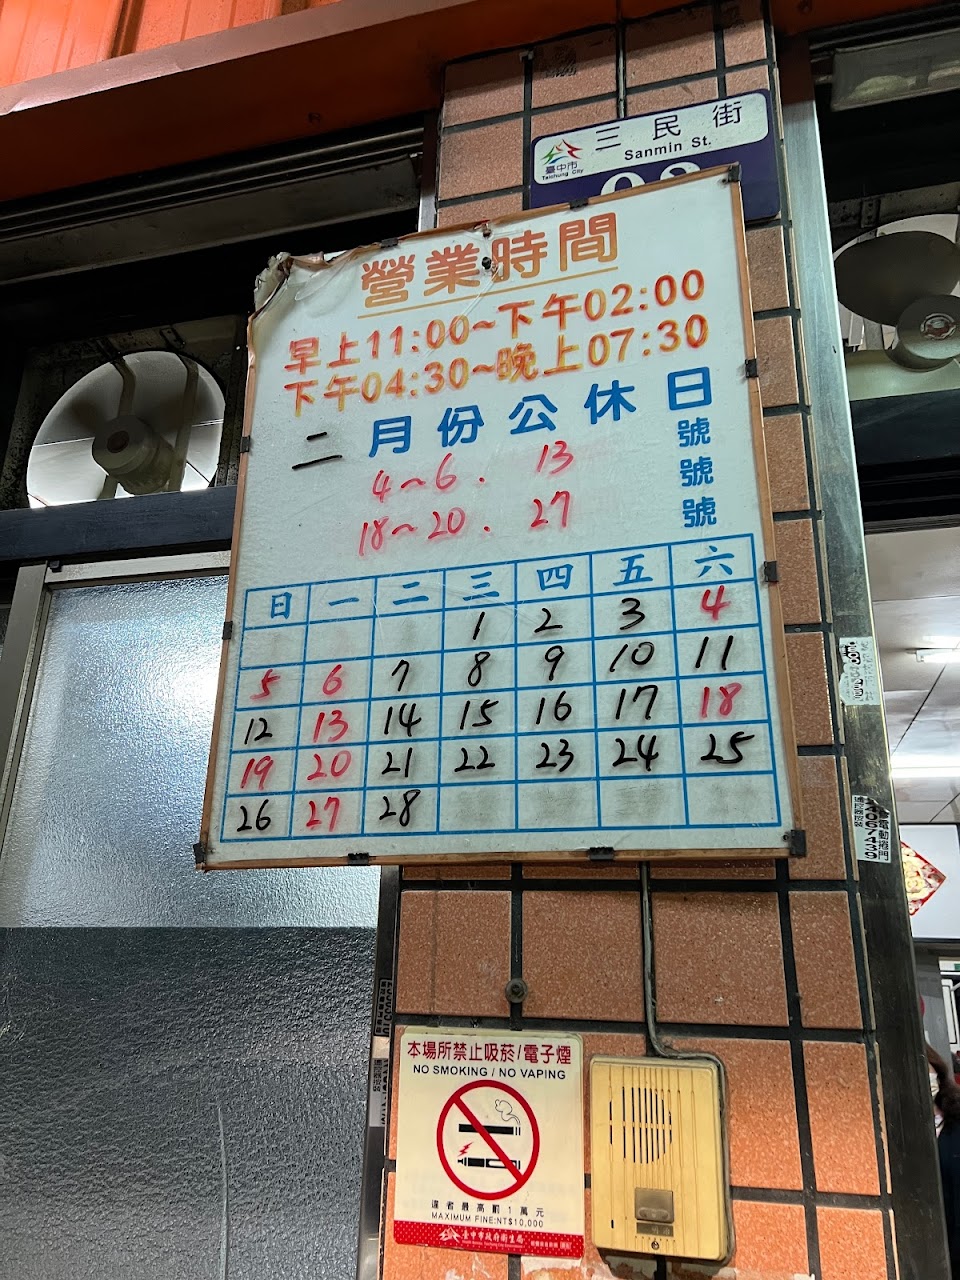 三民街
Sanmin St.
臺中市
Taichung City
營業時間
早上11:00~下午02:00
下午04:30~晚上07:30
二月份公休日
4~6. 13 號
號
18~20. 27 號
日 一 二 三 四 五 六
1 2 3 4
5 6 7 8 9 10 11
12 13 14 15 16 17 18
19 20 21 22 23 24 25
26 27 28
電動捲門
4067439
本場所禁止吸菸/電子煙
NO SMOKING / NO VAPING
違者最高罰1萬元
MAXIMUM FINE:NT$10,000
臺中市政府衛生局